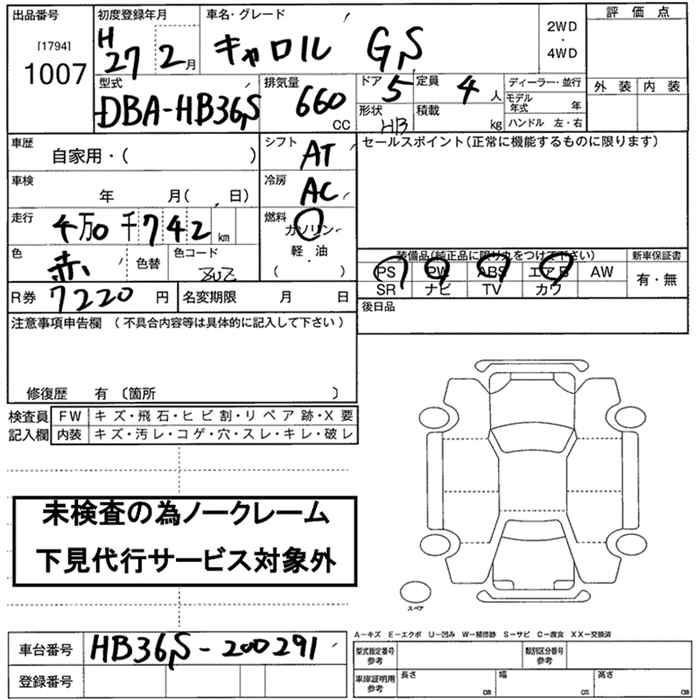 出品番号
[1794]
1007
初度登録年月
H 27 2月
車名・グレード
キャロル GS
2WD
・
4WD
評価点
外装 内装
型式
DBA-HB36S
排気量
660
CC
ドア 5
形状 HB
定員 4人
積載 kg
ディーラー・並行
モデル年式 年
ハンドル 左・右
車歴
自家用・( )
シフト AT
セールスポイント(正常に機能するものに限ります)
車検
年 月( 、日)
冷房 AC
走行
4万0千742km
燃料
ガソリン
軽・油
( ・ )
色
赤
色替
色コード
装備品(純正品に限り丸をつけて下さい)
PS PW ABS エアB AW
SR ナビ TV カワ
新車保証書
有・無
R券 7220円
名変期限 月 日
後日品
注意事項申告欄 (不具合内容等は具体的に記入して下さい)
修復歴 有 〔箇所 〕
検査員
記入欄
FW キズ・飛石・ヒビ割・リペア跡・X要
内装 キズ・汚レ・コゲ・穴・スレ・キレ・破レ
未検査の為ノークレーム
下見代行サービス対象外
スペア
A－キズ E－エクボ U－凹み W－補修跡 S－サビ C－腐食 XX－交換済
車台番号 HB36S-200291
登録番号
型式指定番号
参考
類別区分番号
参考
車庫証明用
参考
長さ cm
幅 cm
高さ cm